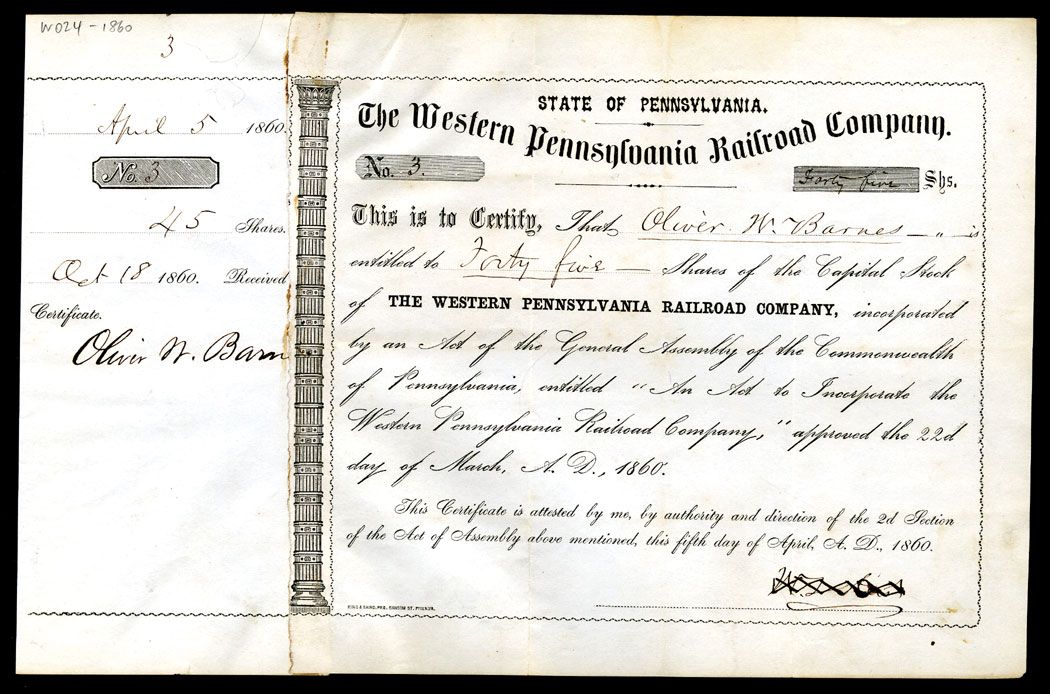 W024-1860
3
April 5 1860.
No. 3
45 Shares.
Oct 18 1860. Received
Certificate.
Oliver W. Barn
STATE OF PENNSYLVANIA.
The Western Pennsylvania Railroad Company.
No. 3.
Forty five Shs.
This is to Certify, That Oliver W. Barnes — „ — is
entitled to Forty five — Shares of the Capital Stock
of THE WESTERN PENNSYLVANIA RAILROAD COMPANY, incorporated
by an Act of the General Assembly of the Commonwealth
of Pennsylvania, entitled "An Act to Incorporate the
Western Pennsylvania Railroad Company," approved the 22d
day of March, A. D., 1860.
This Certificate is attested by me, by authority and direction of the 2d Section
of the Act of Assembly above mentioned, this fifth day of April, A. D., 1860.
KING & BAIRD, PRS. SANSOM ST. PHILADA.